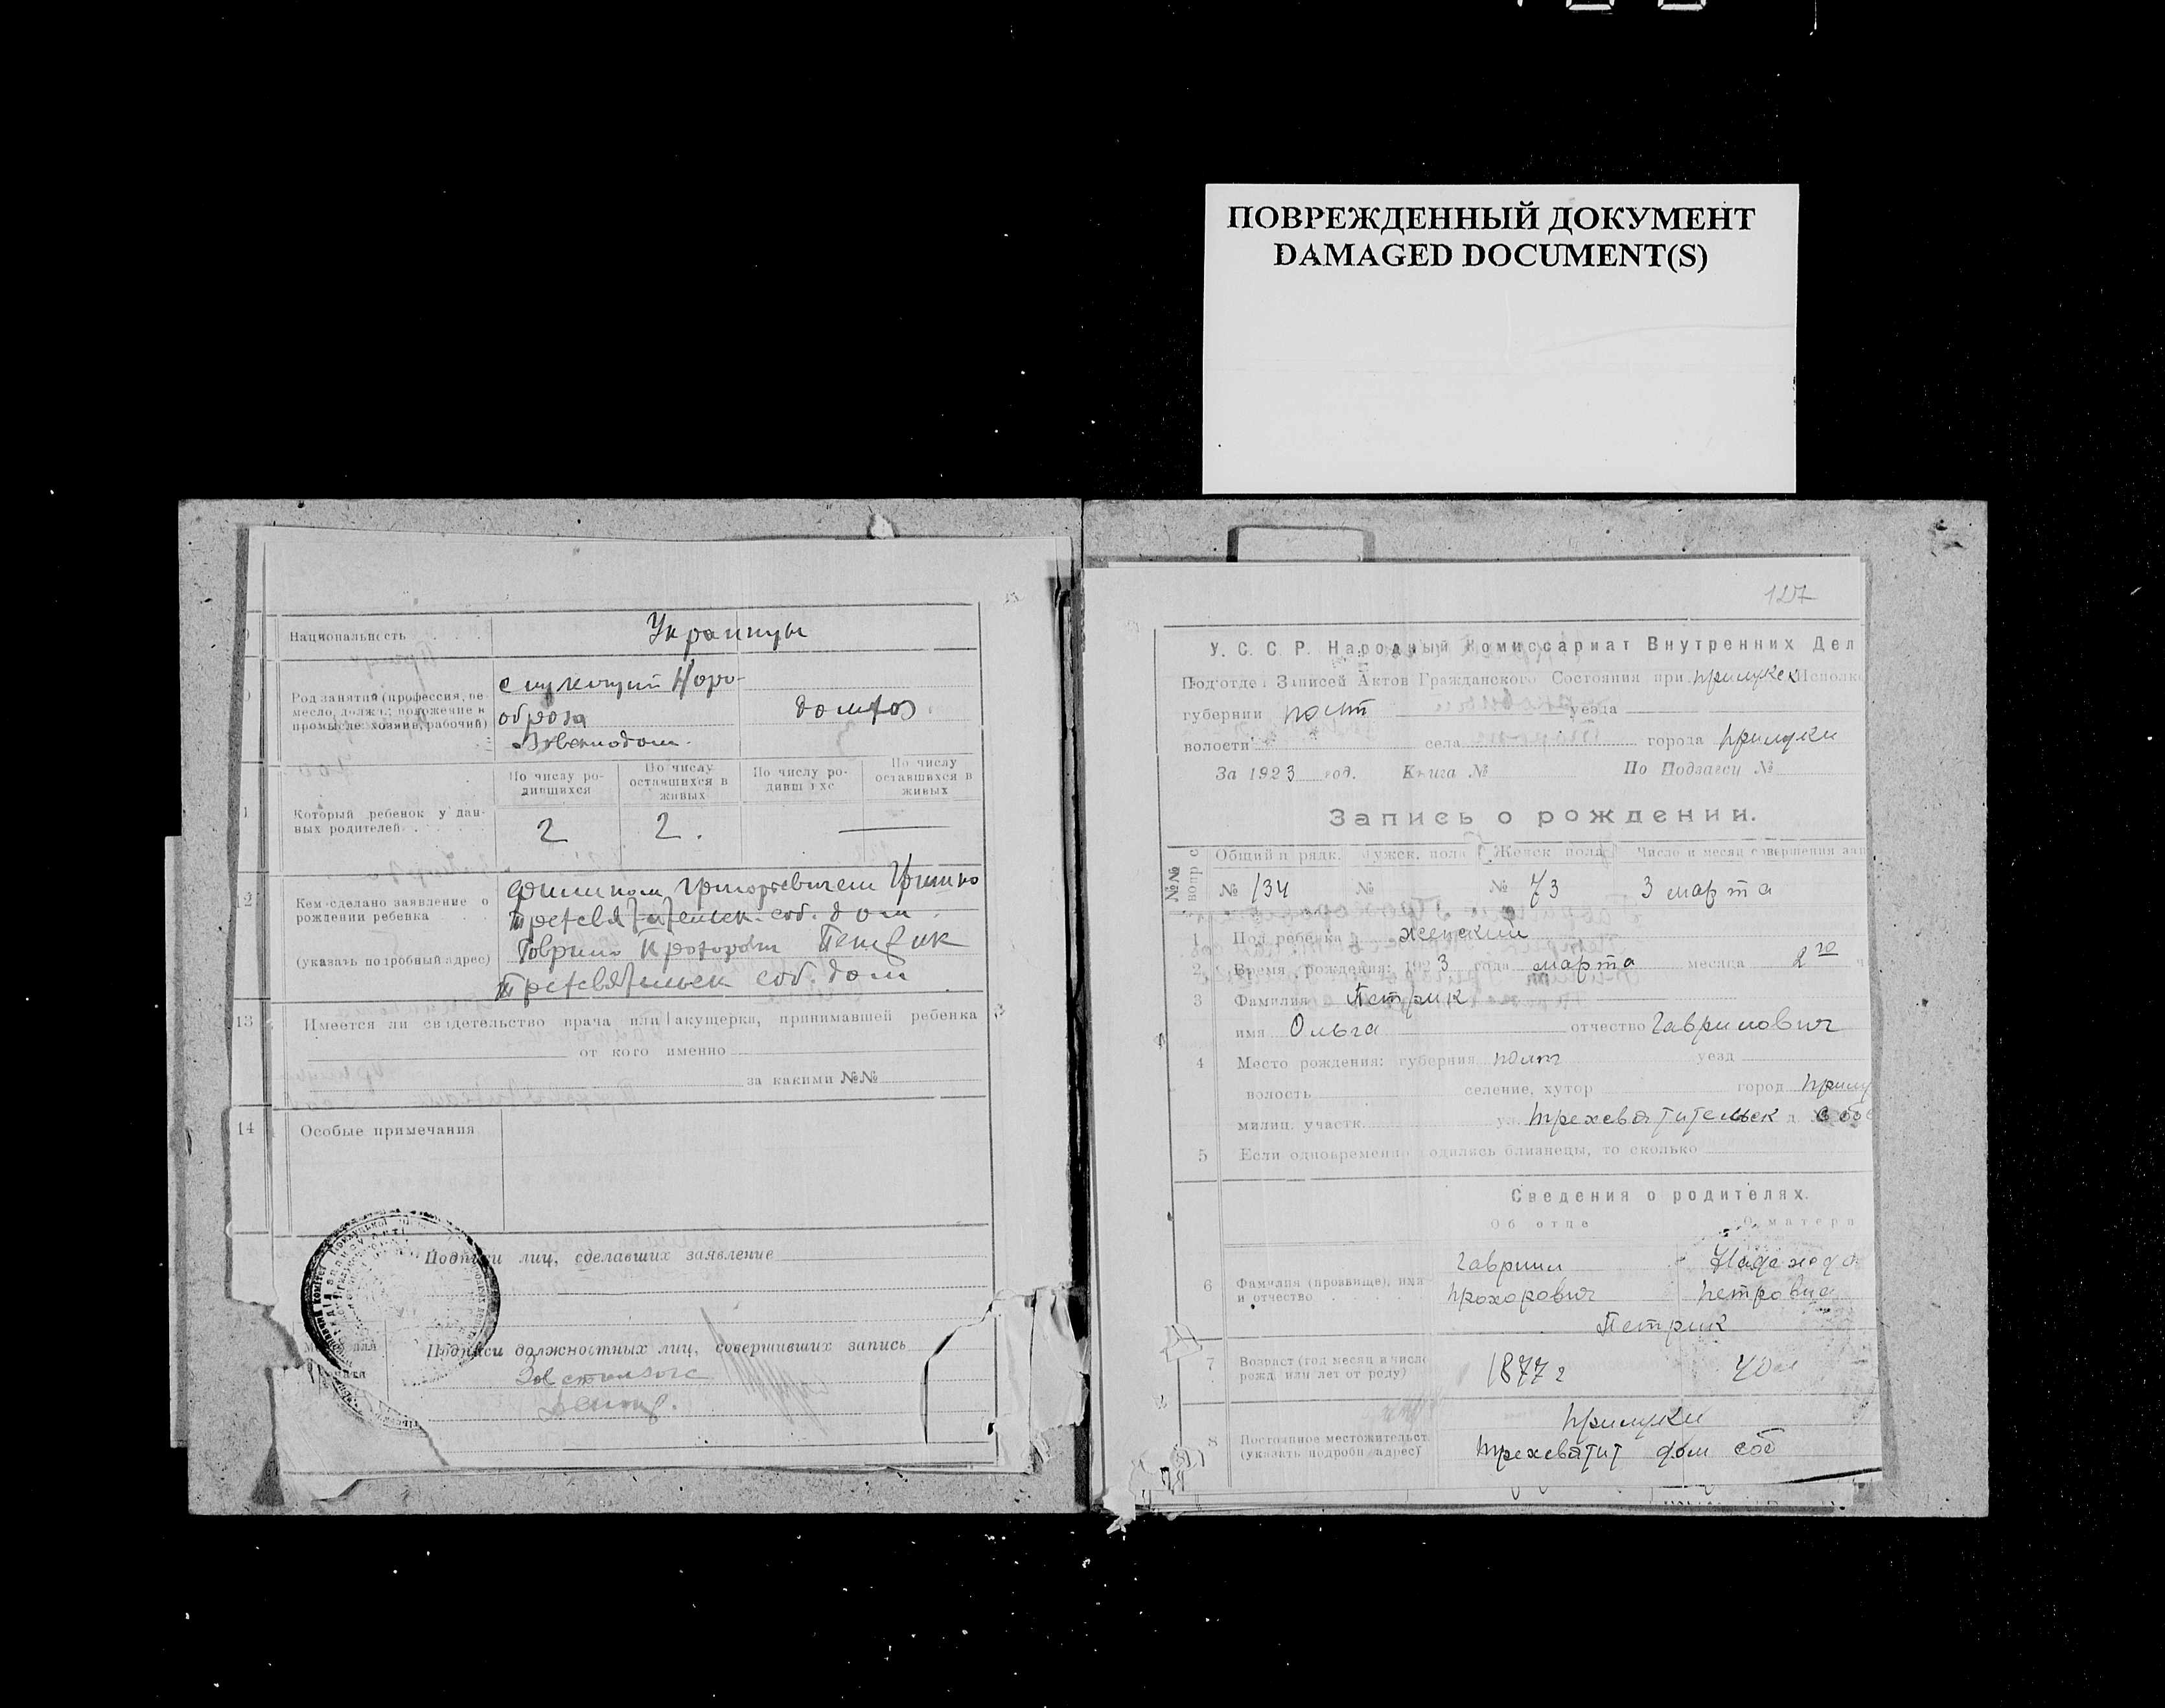 ПОВРЕЖДЕННЫЙ ДОКУМЕНТ
DAMAGED DOCUMENT(S)
Национальность
Украинцы
Род занятий (профессия, ремесло, должн.; положение в промысле: хозяин, рабочий)
служащий Наро-
образа
домхоз
Который ребенок у данных родителей
По числу родившихся
По числу оставшихся в живых
По числу родивш ихс
По числу оставшихся в живых
2
2.
12
Кем сделано заявление о рождении ребенка
(указать подробный адрес)
Григорьевичем Гришко
соб. дом
Петрик
соб. дом
13
Имеется ли свидетельство врача или акушерки, принимавшей ребенка
от кого именно
за какими №№
14
Особые примечания
Подписи лиц, сделавших заявление
Подписи должностных лиц, совершивших запись
127
У. С. С. Р. Народный Комиссариат Внутренних Дел
Подотдел Записей Актов Гражданского Состояния при Прилукск Исполк
губернии Полт уезда
волости села города Прилуки
За 1923 год. Книга № По Подзагсу №
Запись о рождении.
№№ вопр с
Общий п рядк. Мужск. пола Женск пола Число и месяц совершения зап
№ 134 № № 73 3 марта
1 Пол ребенка женский
2 Время рождения: 1923 года марта месяца 2го ч
3 Фамилия Петрик
имя Ольга отчество Гаврилович
4 Место рождения: губерния Полт уезд
волость селение, хутор город Прилу
милиц. участк. ул. Трехсвятительск д. соб
5 Если одновременно родились близнецы, то сколько
Сведения о родителях.
Об отце О матери
6 Фамилия (прозвище), имя и отчество
Гаврил Надежда
Прохорович Петровна
Петрик
7 Возраст (год месяц и число рожд. или лет от роду)
1877 г 40 л
8 Постоянное местожительст. (указать подробн. адрес)
Прилуки
Трехсвятит дом соб